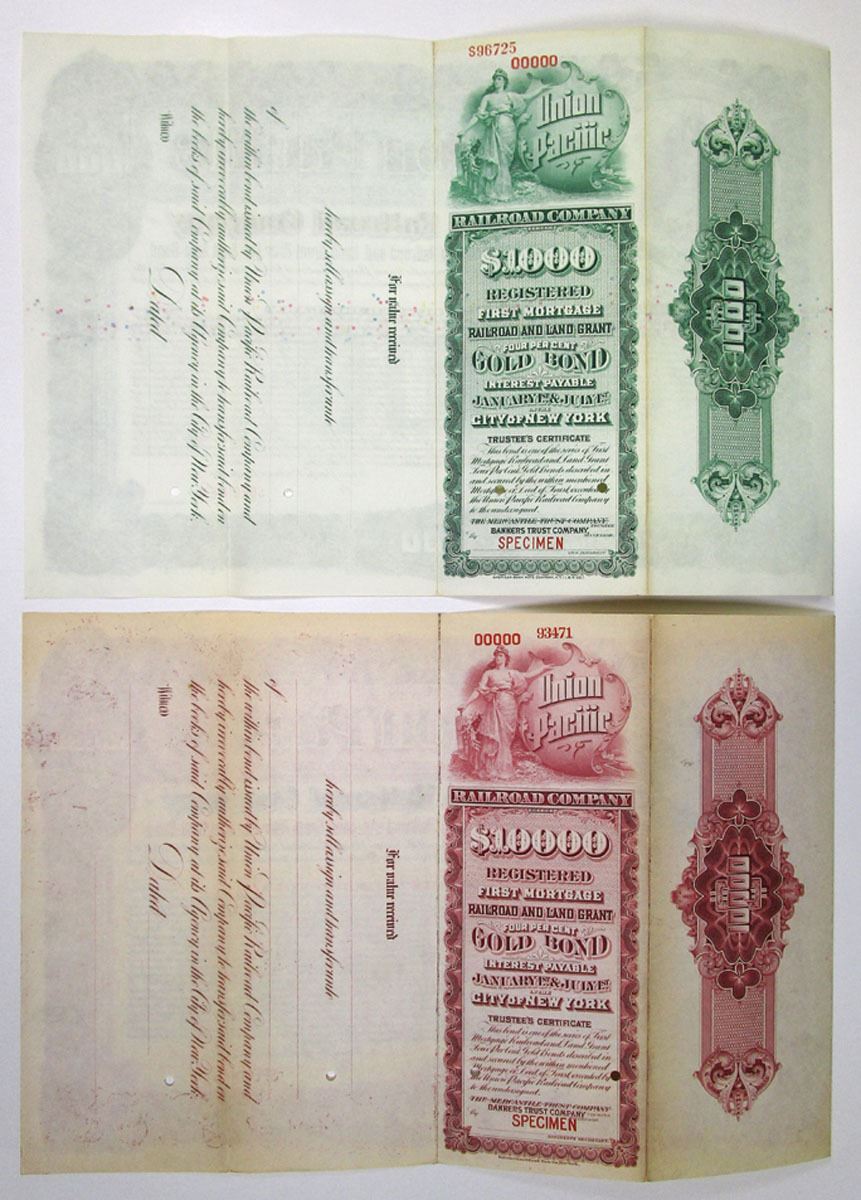 S96725
00000
Union
Pacific
RAILROAD COMPANY
COMPANY
$1000
REGISTERED
FIRST MORTGAGE
RAILROAD AND LAND GRANT
FOUR PER CENT
GOLD BOND
INTEREST PAYABLE
JANUARY 1ST & JULY 1ST
IN THE
CITY OF NEW YORK
TRUSTEE'S CERTIFICATE
This bond is one of the series of First
Mortgage Railroad and Land Grant
Four Per Cent. Gold Bonds described in
and secured by the within mentioned
Mortgage or Deed of Trust executed by
the Union Pacific Railroad Company
to the undersigned.
THE MERCANTILE TRUST COMPANY
BANKERS TRUST COMPANY,
By
SPECIMEN
For value received
hereby sell assign and transfer unto
of
the within bond issued by Union Pacific Railroad Company and
hereby irrevocably authorize said Company to transfer said bond on
the books of said Company at its Agency in the City of New York.
Dated
Witness
$1000
00000
93471
Union
Pacific
RAILROAD COMPANY
COMPANY
$10000
REGISTERED
FIRST MORTGAGE
RAILROAD AND LAND GRANT
FOUR PER CENT
GOLD BOND
INTEREST PAYABLE
JANUARY 1ST & JULY 1ST
IN THE
CITY OF NEW YORK
TRUSTEE'S CERTIFICATE
This bond is one of the series of First
Mortgage Railroad and Land Grant
Four Per Cent. Gold Bonds described in
and secured by the within mentioned
Mortgage or Deed of Trust executed by
the Union Pacific Railroad Company
to the undersigned.
THE MERCANTILE TRUST COMPANY
BANKERS TRUST COMPANY
By
SPECIMEN
For value received
hereby sell assign and transfer unto
of
the within bond issued by Union Pacific Railroad Company and
hereby irrevocably authorize said Company to transfer said bond on
the books of said Company at its Agency in the City of New York.
Dated
Witness
$10000